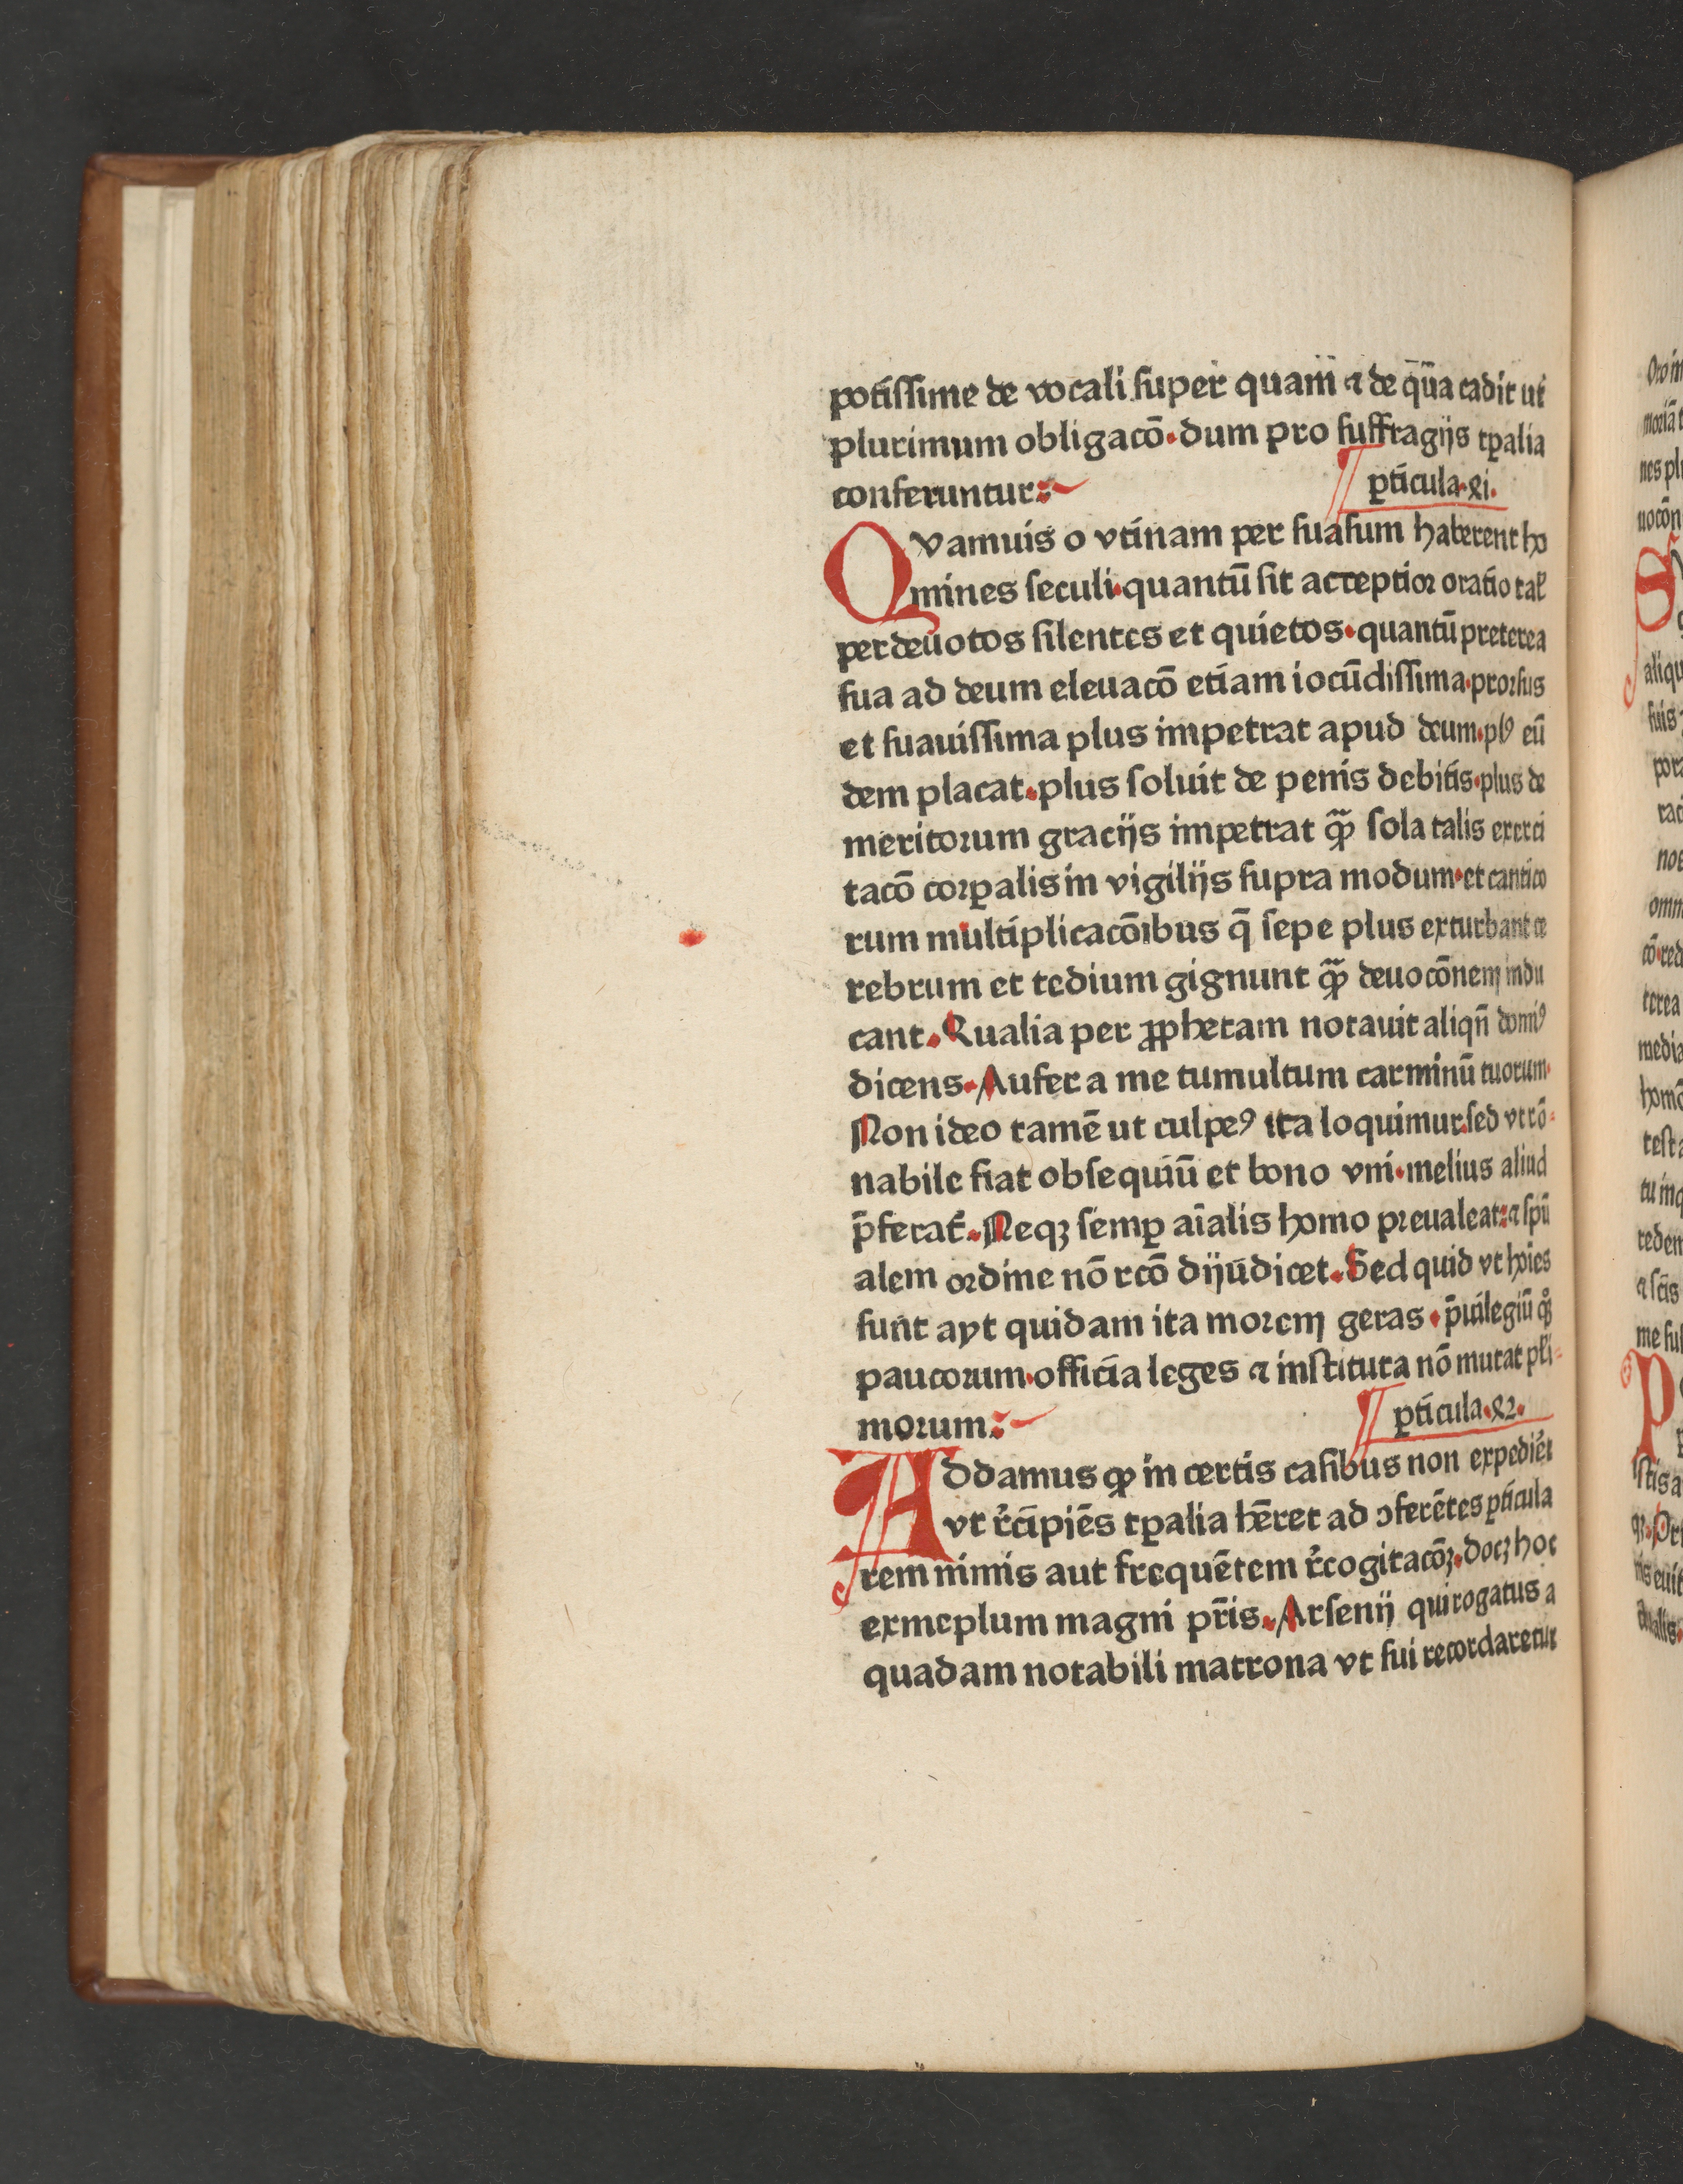 potissime de vocali super quam̄ ⁊ de qūa cadit ut
plurimum obligacō. dum pro suffragijs tꝑalia
conferuntur:
ꝑticula. 81.
Qvamuis o vtinam per suasum haberent ho
mines seculi. quantū sit acceptior oratio tal̕
per deuotos silentes et quietos. quantū preterea
sua ad deum eleuacō etiam iocūdissima. prorsus
et suauissima plus impetrat apud deum. plꝰ eū
dem placat. plus soluit de penis debitis. plus de
meritorum gracijs impetrat qͣꝫ sola talis exerci
tacō corꝑalis in vigilijs supra modum. et cantico
rum multiplicacōibus q̄ sepe plus exturbant ce
rebrum et tedium gignunt qͣꝫ deuocōnem indu
cant. Qualia per ꝓphetam notauit aliqn̄ domīꝰ
dicens. Aufer a me tumultum carminū tuorum.
Non ideo tamē ut culpeꝰ ita loquimur. sed vt rō-
nabile fiat obsequiū et bono vni. melius aliud
p̄ferat᷑. Neqꝫ semꝑ aīalis homo preualeat: ⁊ spū
alem ordine nō rcō dijūdicet. Sed quid vt hoīes
sunt ayt quidam ita morem geras. p̄uilegiū qͦꝫ
paucorum. officia leges ⁊ instituta nō mutat pl̕i-
morum:
ꝑticula. 82.
Addamus ꝙ in certis casibus non expediet
vt r̄cīpiēs tꝑalia hēret ad ↄferētes ꝑticula
rem nimis aut frequētem r̄cogitacōꝫ. docꝫ hoc
exmeplum magni pr̄is. Arsenij qui rogatus a
quadam notabili matrona vt sui recordaretur